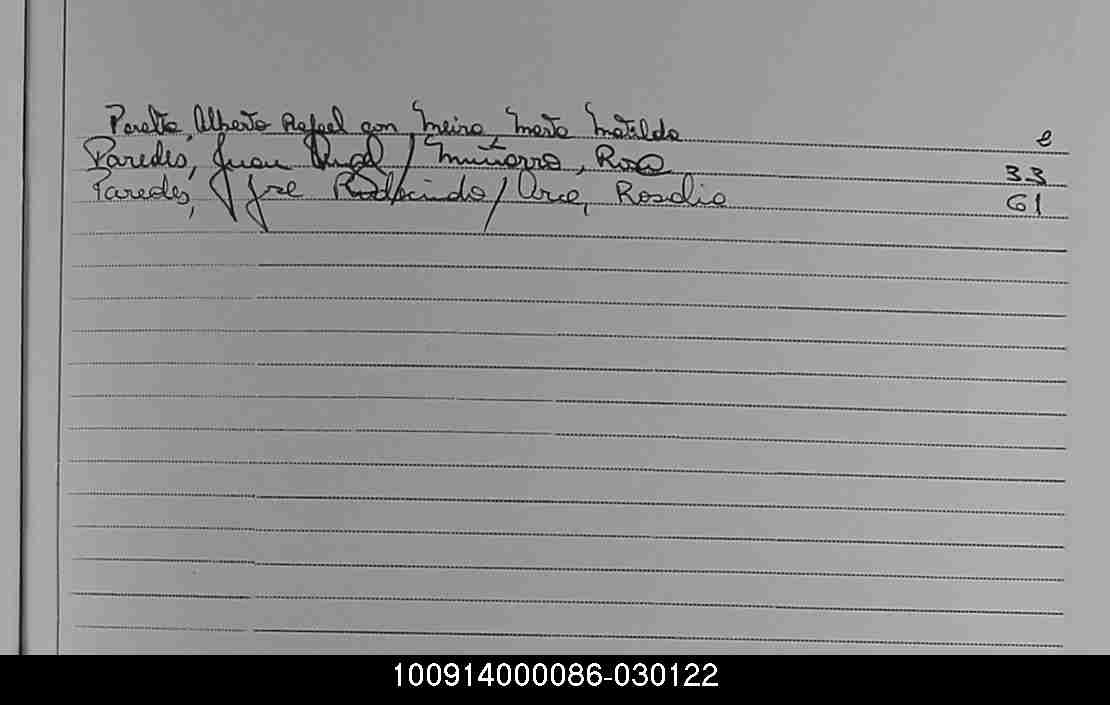 Peralta, Alberto Rafael con Meira, Marta Matilde e
Paredes, Juan Angel / Muñarro, Rosa 33
Paredes, José Rodocindo / Arce, Rosalia 61
100914000086-030122